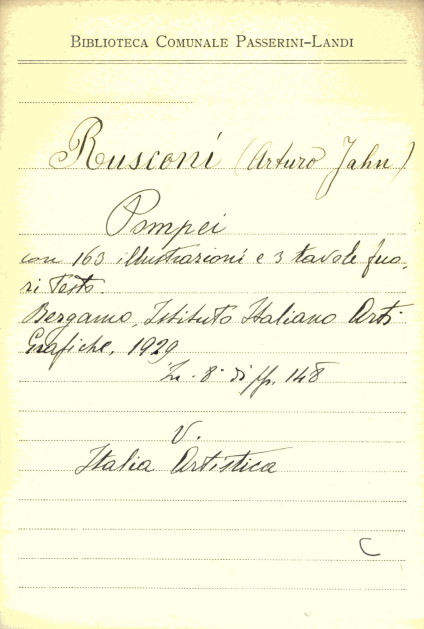 BIBLIOTECA COMUNALE PASSERINI-LANDI
Rusconi (Arturo Jahn)
Pompei
con 163 illustrazioni e 3 tavole fuo-
ri testo.
Bergamo, Istituto Italiano Arti
Grafiche, 1929
In-8° di pp. 148
V.
Italia Artistica
C